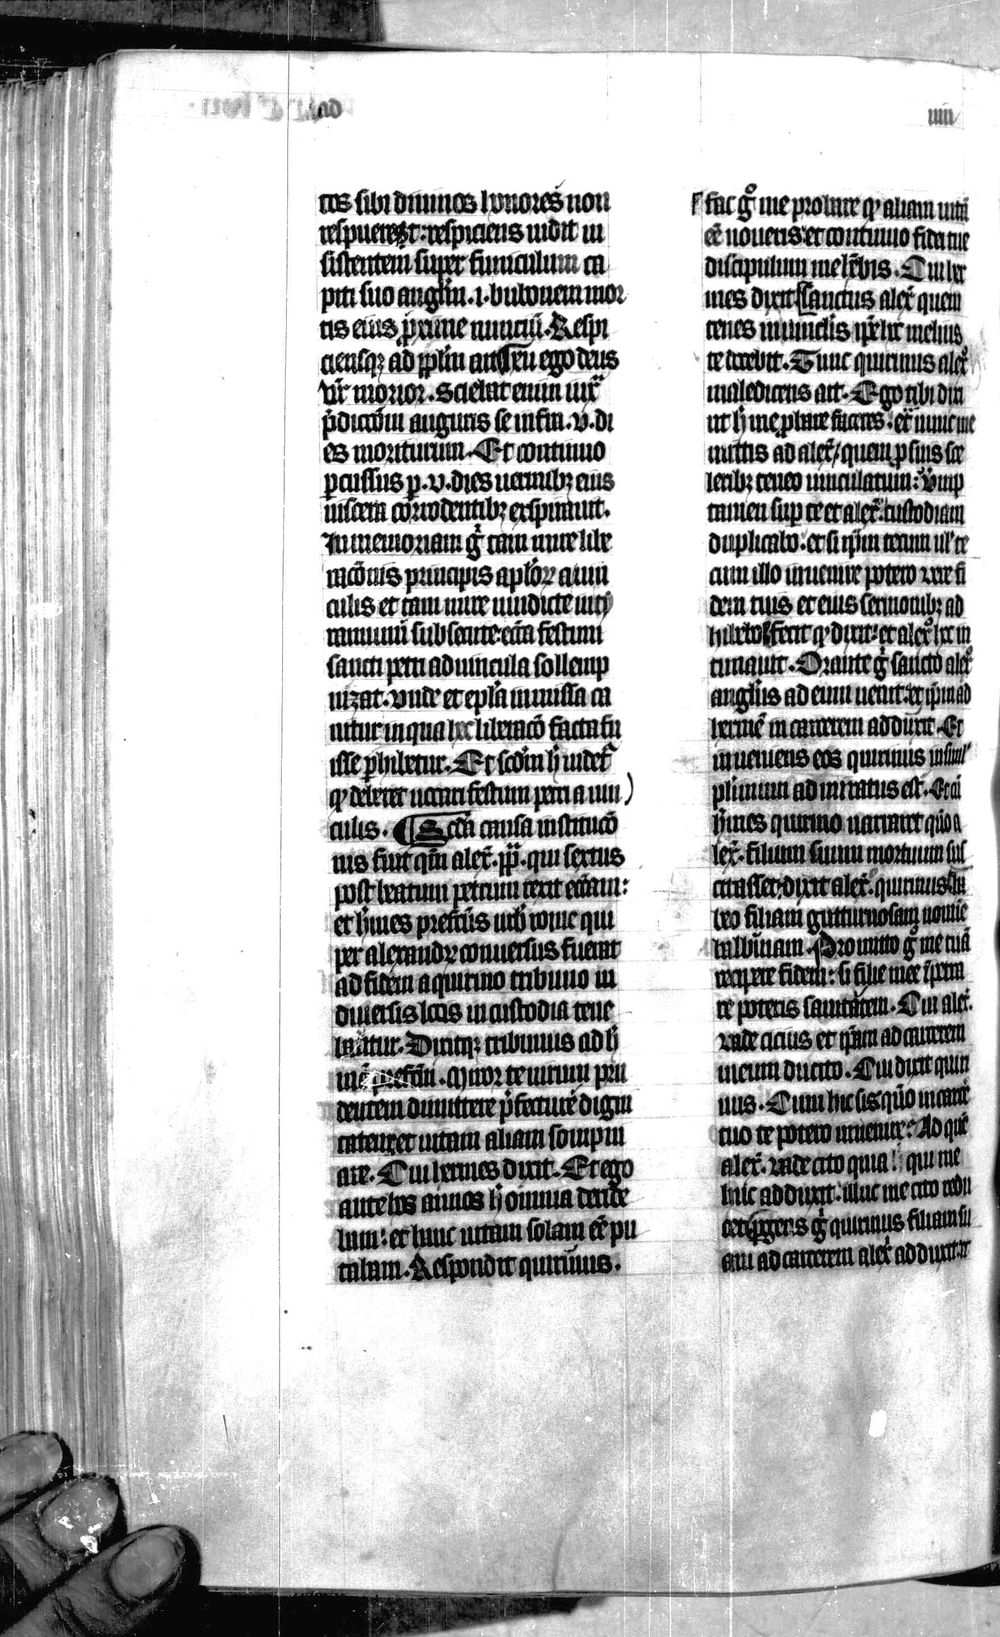 iiii
tes sibi diuinos honores non
respueret: respiciens uidit in
sistentem super funiculum ca
piti suo anglm̄ .i. bubonem mor
tis eius ꝓxime nunciū. Respi
ciensqꝫ ad pplm̄ ait Eu ego deus
vr̄ morior. Sciebat enim iux̄
p̄dictōem auguris se infra .v. di
es moriturum. Et continuo
ꝑcussus ꝑ .v. dies uermibꝫ eius
uiscera corrodentibꝫ exspirauit.
In memoriam gͥ tam mire libe
racōnis principis aplōꝝ a uin
culis et tam mire uindicte in ty
rannum subsecute: ecc̄a festum
sancti petri ad uincula sollemp
nizat. vnde et ep̄la in missa ca
nitur in qua hec liberacō facta fu
isse ꝑhibetur. Et scd̄m h̄ uidet᷑
qꝫ deberet uocari festum petri a uin
culis. ¶ Scd̄a causa institucō
nis fuit qm̄ alex̄. pp̄. qui sextus
post beatum petrum rexit ecc̄am:
et h̄mes prefectus urb̄ rome qui
per alexandꝝ conuersus fuerat
ad fidem a quirino tribuno in
diuersis locis in custodia tene
bantur. Dixitqꝫ tribunus ad h̄
mē prefectū. Miror te uirum pru
dentem dimittere p̄fecture digni
tatem et uitam aliam sompni
are. Cui hermes dixit. Et ego
ante hos annos h̄ omnia deride
bam: et hanc uitam solam eē pu
tabam. Respondit quirinus.
fac gͦ me probare qꝫ aliam uitā
eē noueris et continuo fidei tue
discipulum me hēbis. Cui her
mes dixit Sanctus alex̄ quem
tenes in uinclis ip̄e hͨ melius
te docebit. Tunc quirinus alexͦ
maledicens ait. Ego tibi dixi
ut h̄ me ꝓbare faceres: et nunc me
mittis ad alex̄ quem ꝓ suis sce
leribꝫ teneo uinculatum: Verūp
tamen suꝑ te et alex̄. custodiam
duplicabo. et si ip̄m tecum ul' te
cum illo inuenire potero vere fi
dem tuis et eius sermonibꝫ ad
hibebo. fecit qꝫ dixit: et alexͦ hͨ in
timauit. Orante gͦ sancto alexͦ
anglūs ad eum uenit: et ip̄m ad
hermē in carcerem adduxit. Et
inueniens eos quirinus insimul'
plurimum admiratus est. Et cū
h̄mes quirino narraret qūo a
lex̄. filium suum mortuum sus
citasset: dixit alex̄. quirinus Ha
beo filiam gutturnosam nomīe
balbinam. Promitto gͦ me tuā
recipere fidem: si filie mee īpetra
re poteris sanitatem. Cui alex̄.
vade cicius et ip̄am ad carcerem
meum ducito. Cui dixit quiri
nus. Cum hic sis qūo in carcē
tuo te potero inuenire: Ad quē
alex̄. vade cito quia qui me
huc adduxit: illuc me cito redu
cet pergens gͦ quirinus filiam su
am ad carcerem alex̄ adduxit: et